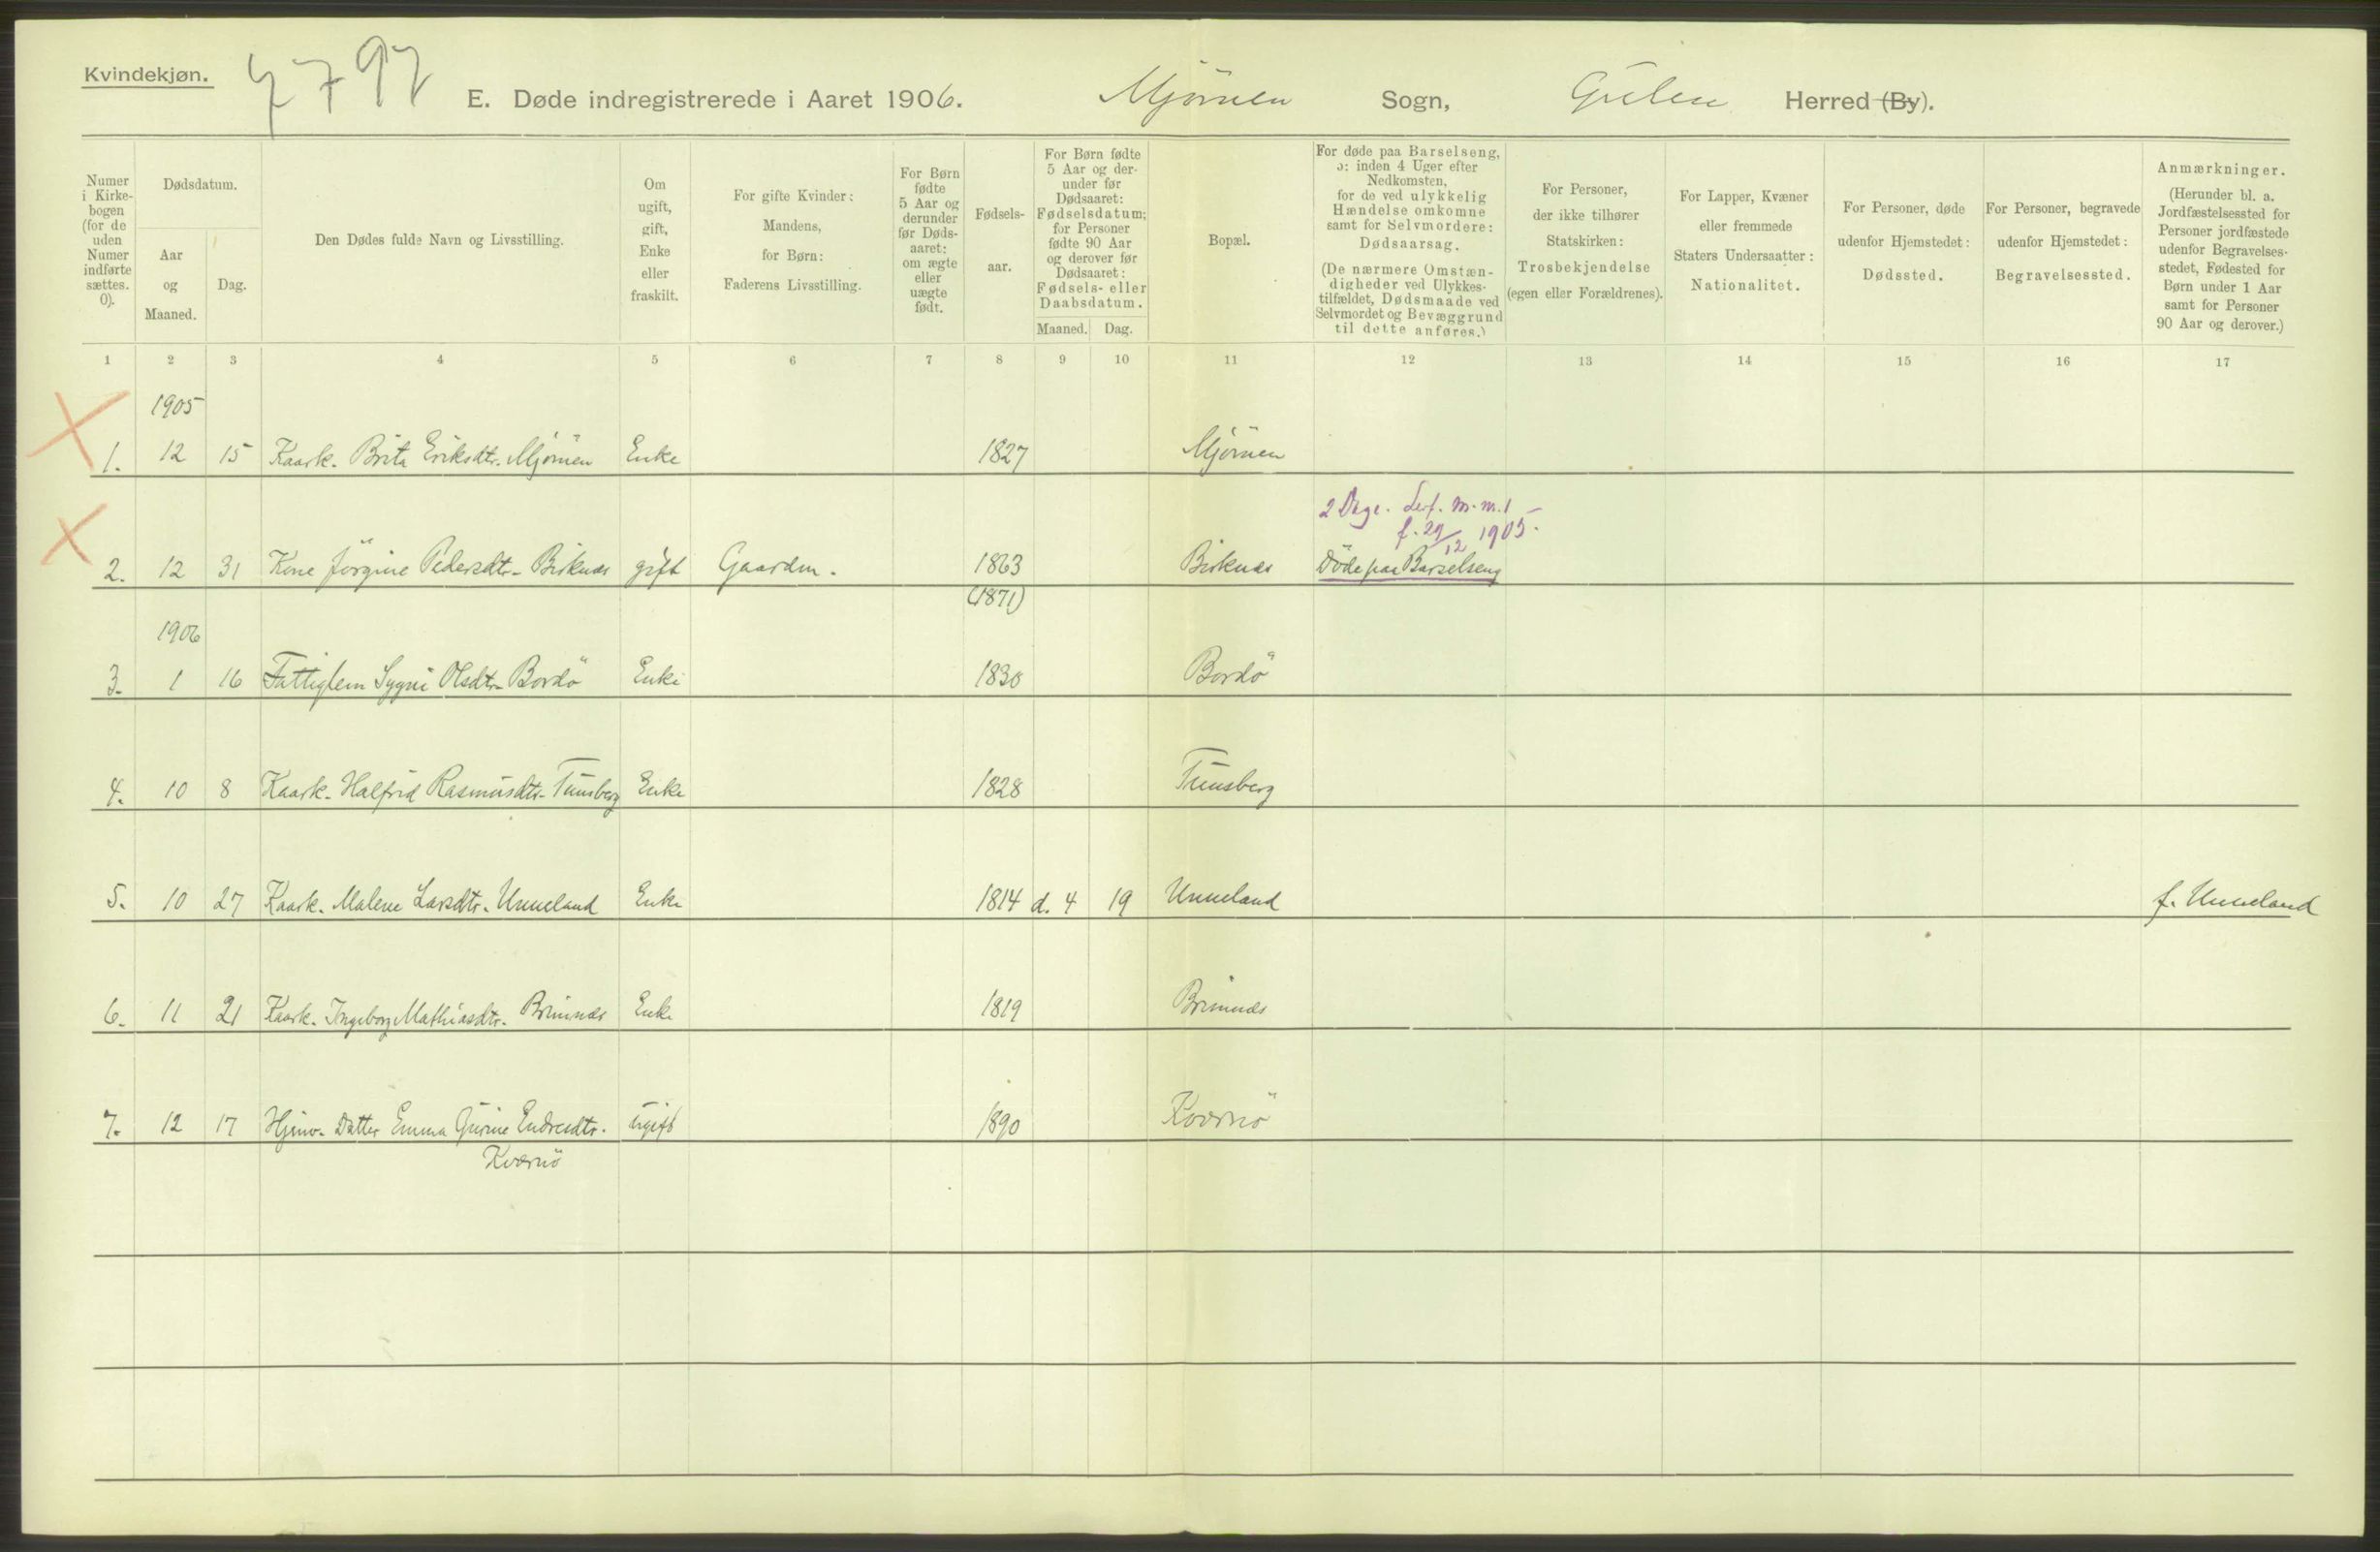 Kvindekjøn.
E. Døde indregistrerede i Aaret 1906. Mjømen Sogn, Gulen Herred (By).
Numer i Kirkebogen (for de uden Numer indførte sættes. 0).
Dødsdatum.
Aar og Maaned.
Dag.
Den Dødes fulde Navn og Livsstilling.
Om ugift, gift, Enke eller fraskilt.
For gifte Kvinder: Mandens, for Børn: Faderens Livsstilling.
For Børn fødte 5 Aar og derunder før Dødsaaret: om ægte eller uægte født.
Fødselsaar.
For Børn fødte 5 Aar og derunder før Dødsaaret: Fødselsdatum; for Personer fødte 90 Aar og derover før Dødsaaret: Fødsels- eller Daabsdatum.
Maaned. Dag.
Bopæl.
For døde paa Barselseng, ɔ: inden 4 Uger efter Nedkomsten, for de ved ulykkelig Hændelse omkomne samt for Selvmordere: Dødsaarsag.
(De nærmere Omstændigheder ved Ulykkestilfældet, Dødsmaade ved Selvmordet og Bevæggrund til dette anføres.)
For Personer, der ikke tilhører Statskirken: Trosbekjendelse (egen eller Forældrenes).
For Lapper, Kvæner eller fremmede Staters Undersaatter: Nationalitet.
For Personer, døde udenfor Hjemstedet: Dødssted.
For Personer, begravede udenfor Hjemstedet: Begravelsessted.
Anmærkninger.
(Herunder bl. a. Jordfæstelsessted for Personer jordfæstede udenfor Begravelsesstedet, Fødested for Børn under 1 Aar samt for Personer 90 Aar og derover.)
1 2 3 4 5 6 7 8 9 10 11 12 13 14 15 16 17
1905
1. 12 15 Kaark. Brita Eriksdtr. Mjömen Enke 1827 Mjömen
2 Dage.
f. 29/12 1905.
2. 12 31 Kone Jörgine Pedersdtr. Birknes gift Gaardm. 1863 Birknes Döde paa Barselseng
(1871)
1906
3. 1 16 Fattiglem Sygni Olsdtr. Bordö Enke 1830 Bordö
4. 10 8 Kaark. Halfrid Rasmusdtr. Tunsberg Enke 1828 Tunsberg
5. 10 27 Kaark. Malene Larsdtr. Unneland Enke 1814 d. 4 19 Unneland f. Unneland
6. 11 21 Kaark. Ingeborg Mathiasdtr. Brimnes Enke 1819 Brimnes
7. 12 17 Hjemv. Datter Emma Gurine Endresdtr. ugift 1890 Kværnö
Kværnö